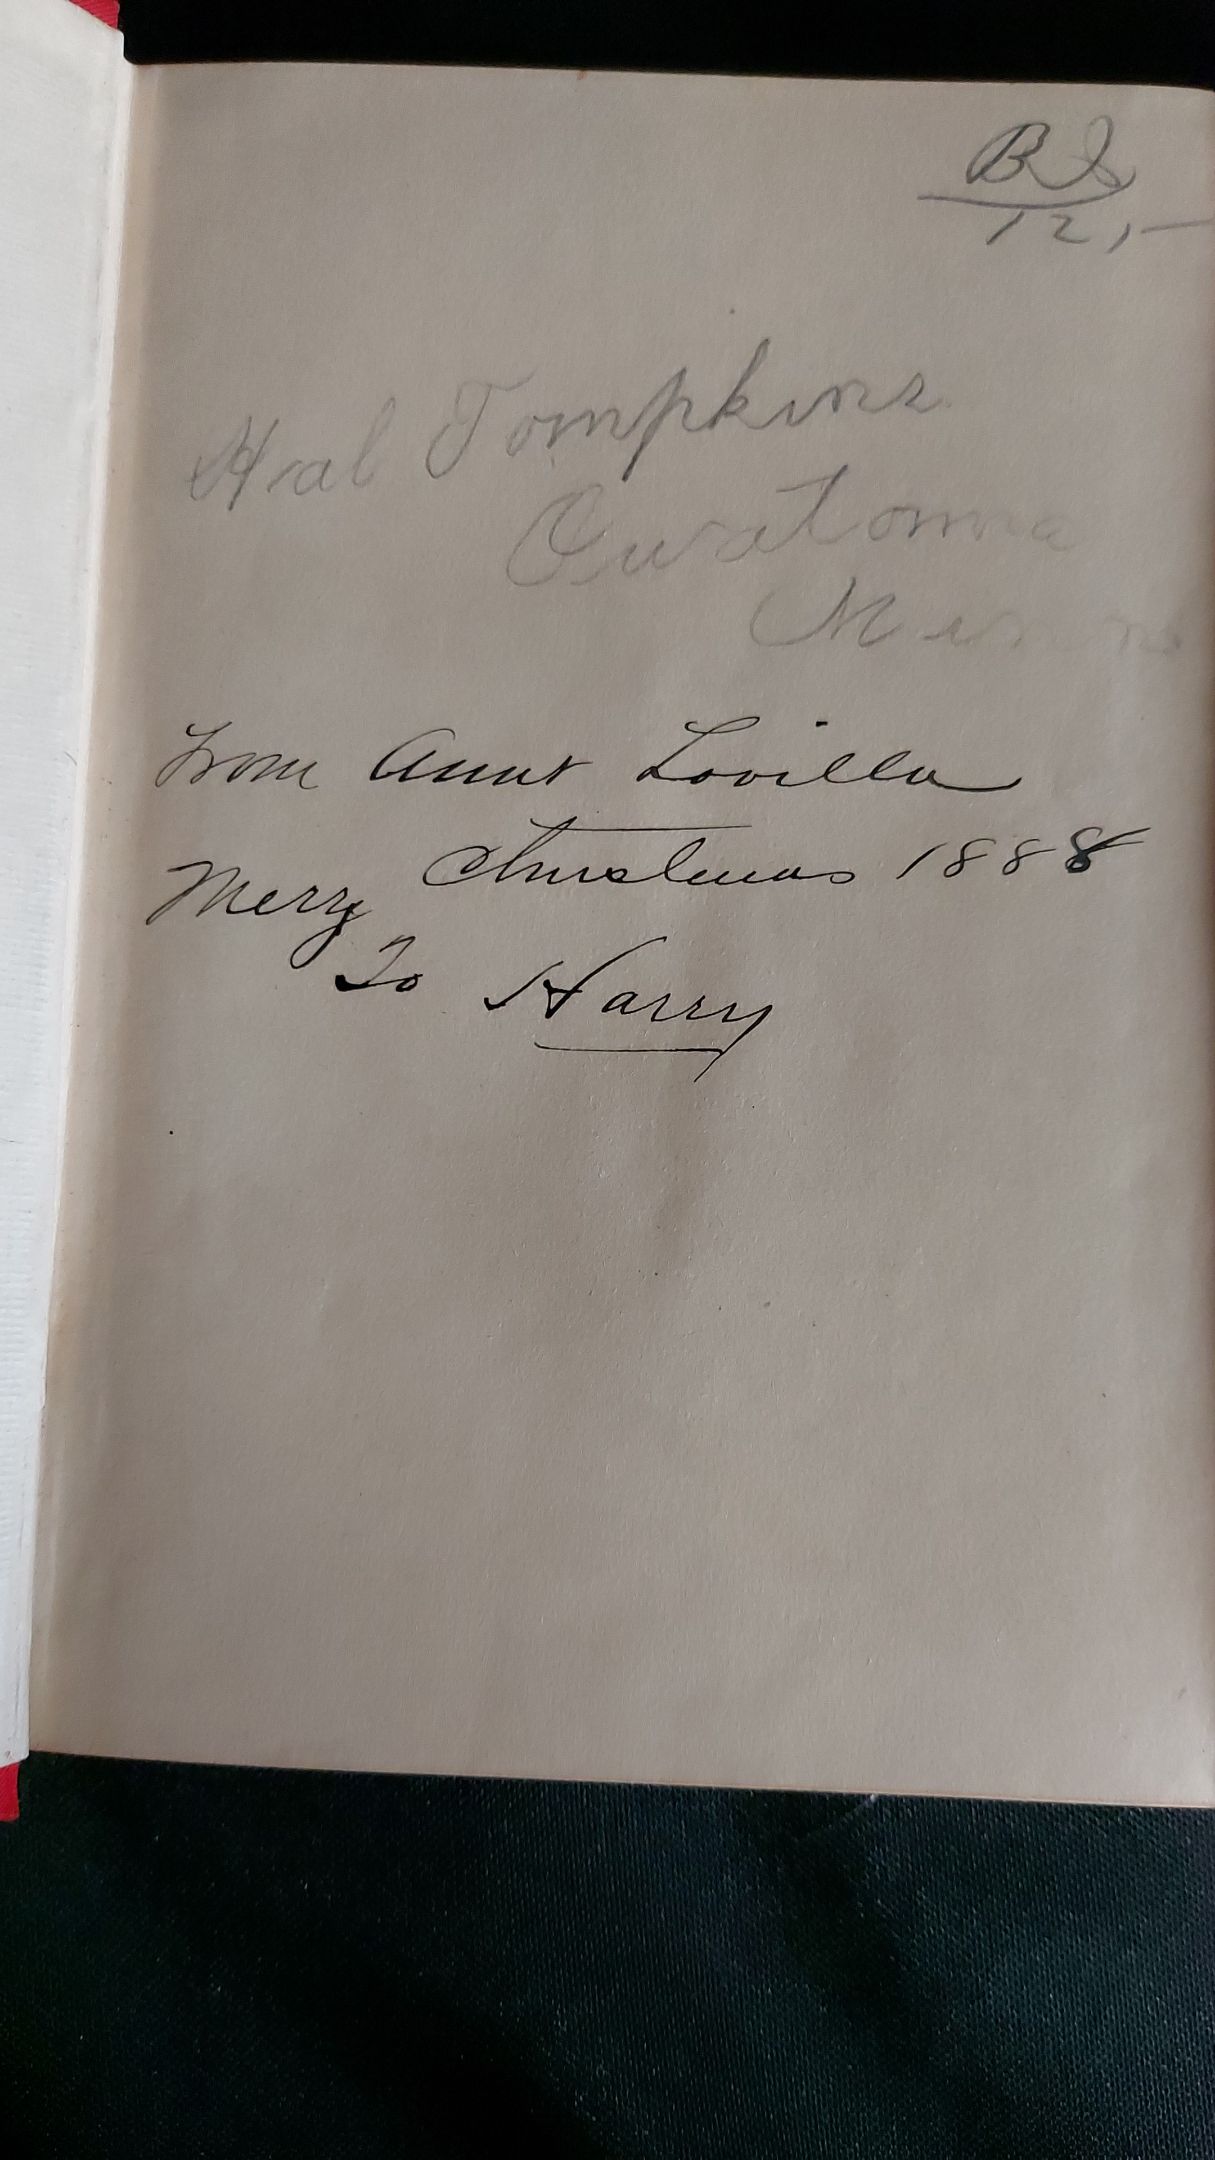 12,-
Hal Tompkins
Owatonna
Minn
From Aunt Lovilla
Merry Christmas 1888
To Harry